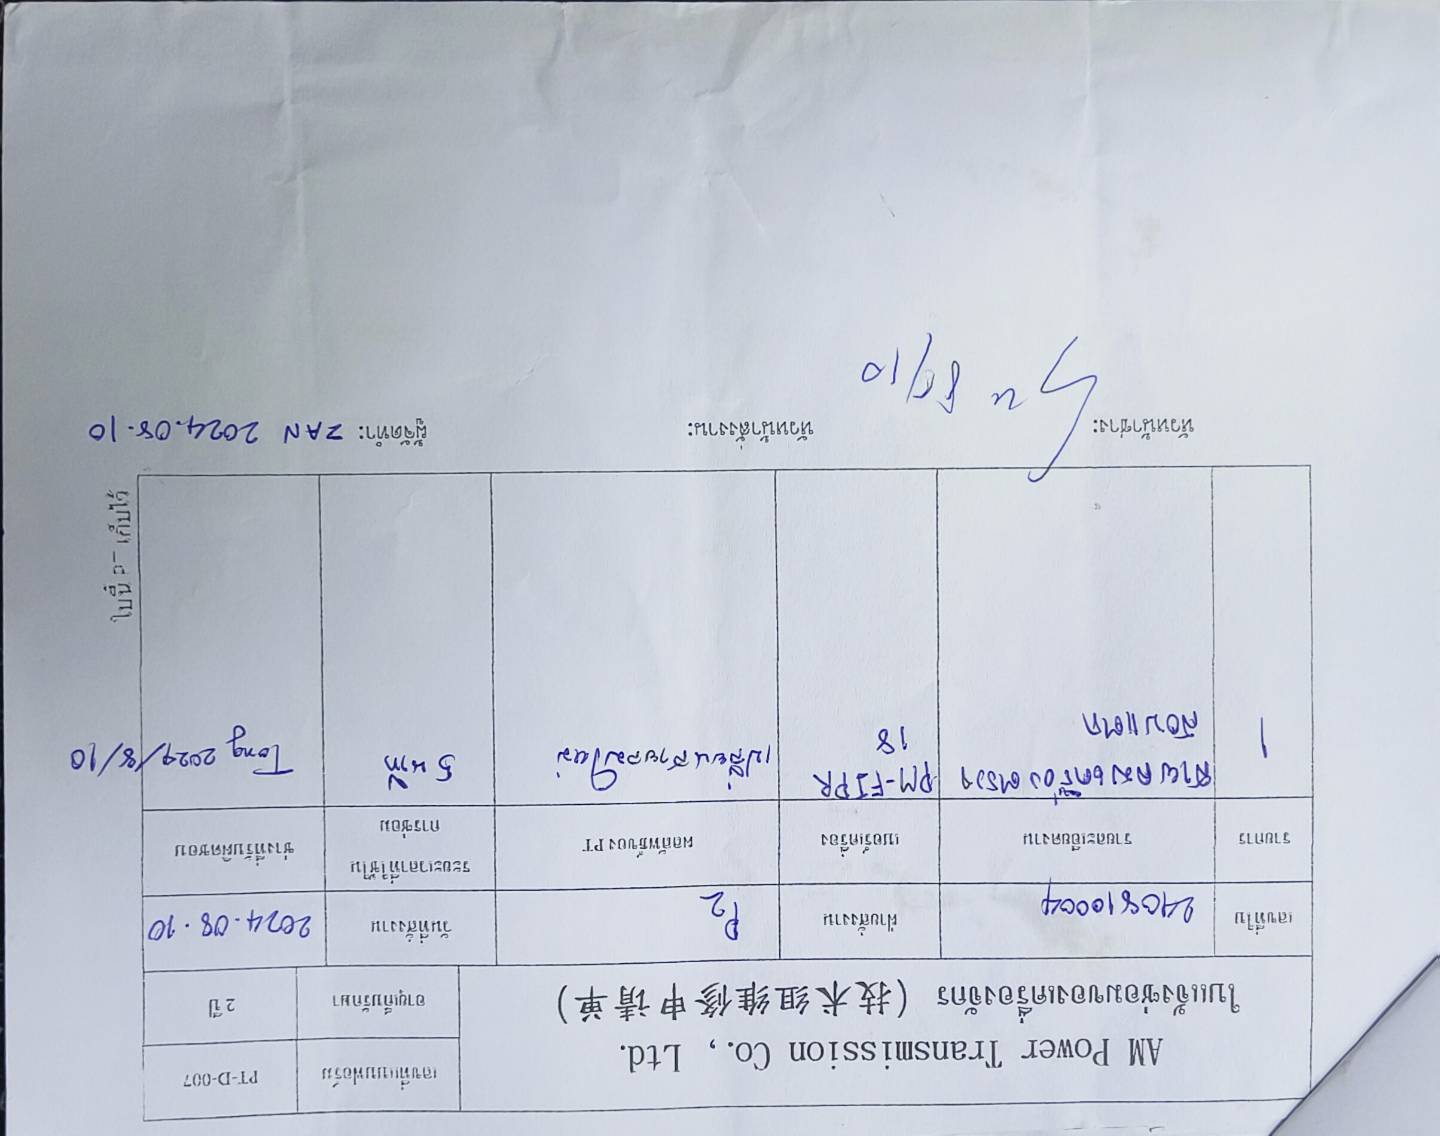 AM Power Transmission Co., Ltd.
ใบแจ้งซ่อมของเครื่องจักร (技术组维修申请单)
เลขที่แบบฟอร์ม PT-D-007
อายุเก็บรักษา 2 ปี
เลขที่ใบ 240810004 ฝ่ายสั่งงาน P2 วันที่สั่งงาน 2024.08.10
รายการ รายละเอียดงาน เบอร์เครื่อง ผลลัพธ์ของ PT ระยะเวลาที่ใช้ใน
การซ่อม ช่างที่รับผิดชอบ
1 สายลมเครื่องตรวจ PM-FIPR เปลี่ยนสายลมใหม่ 5 นาที Tong 2024/8/10
สอบแตก 18
หัวหน้าช่าง: หัวหน้าสั่งงาน: ผู้จัดทำ: ZAN 2024.08.10